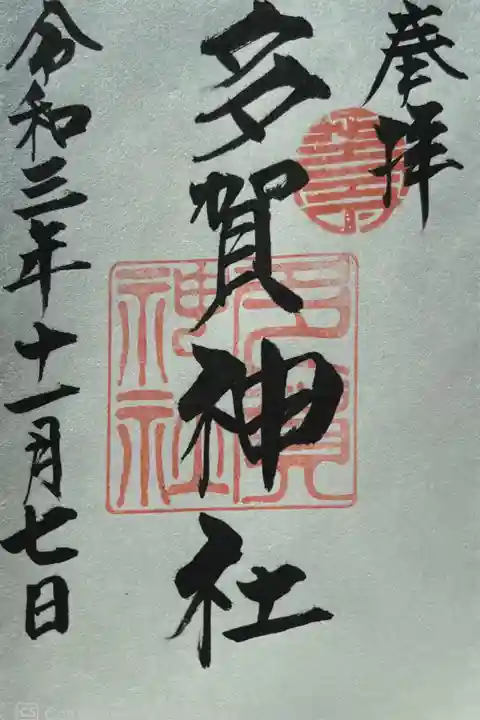 奉拝
多賀神社
令和三年十一月七日
多賀
神社
CS